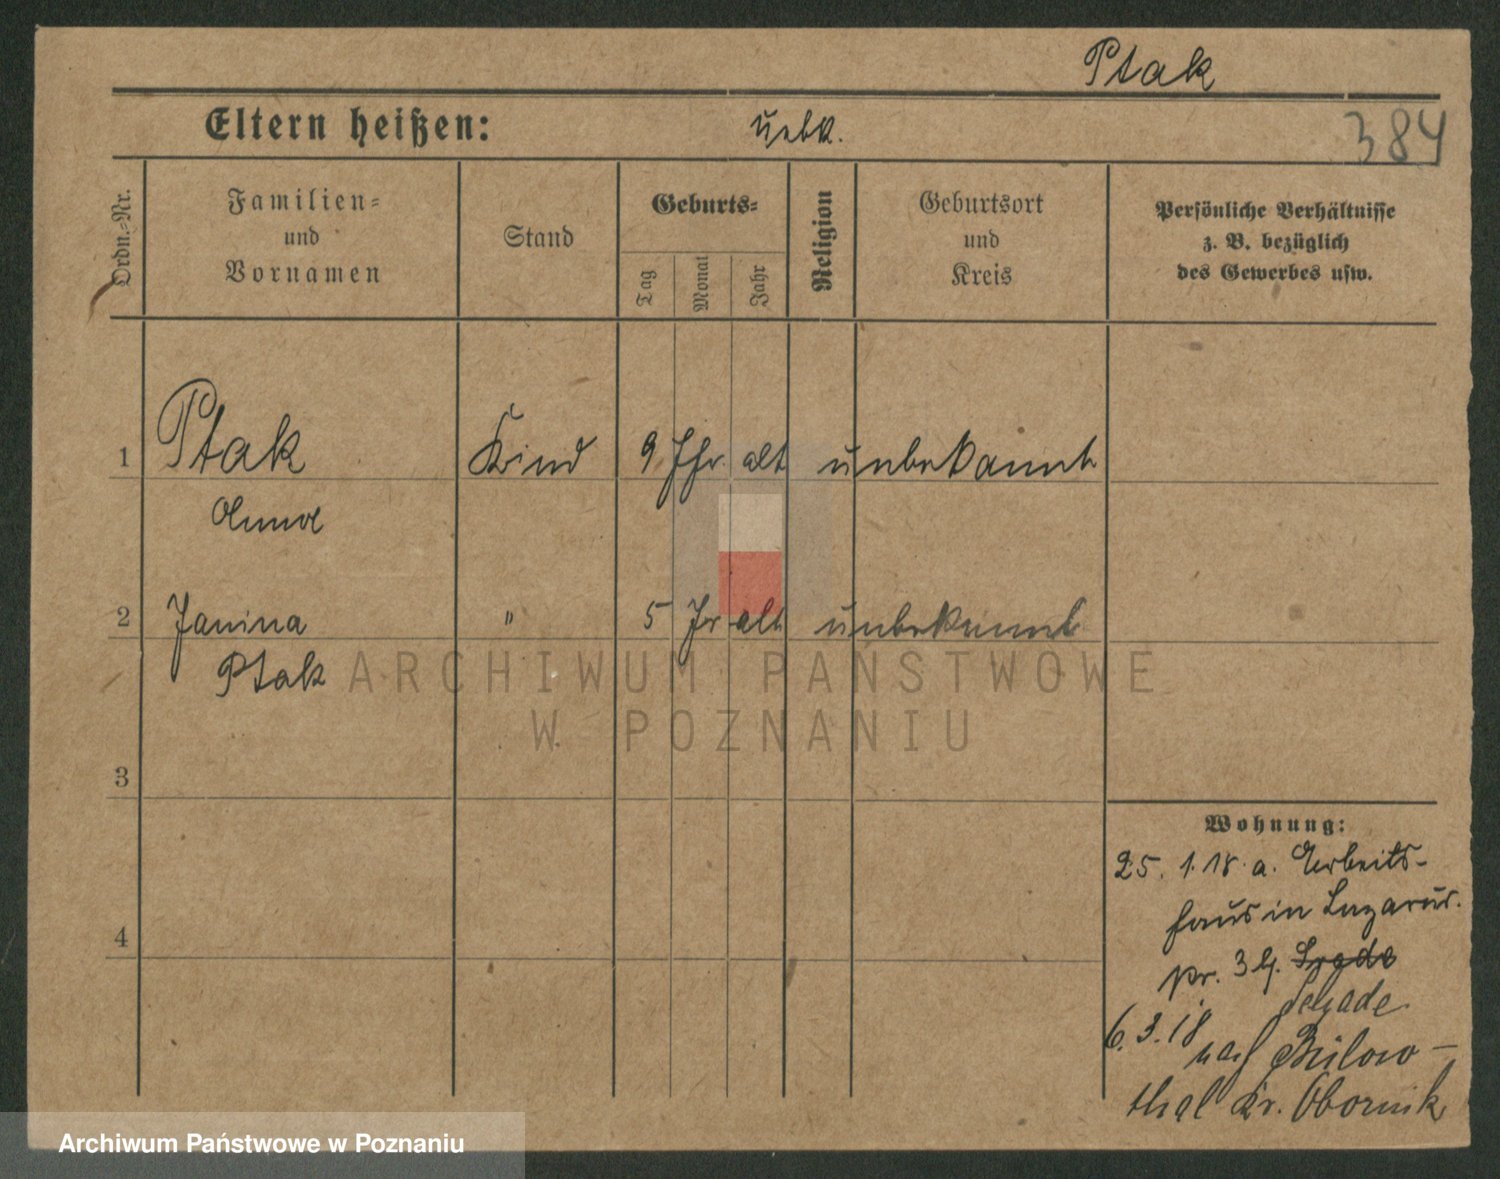 Ptak
Eltern heißen: unbk.
384
Ordn.-Nr.
Familien-
und
Vornamen
Stand
Geburts-
Tag
Monat
Jahr
Religion
Geburtsort
und
Kreis
Persönliche Verhältnisse
z. B. bezüglich
des Gewerbes usw.
1 Ptak Kind 9 Jhr. alt unbekannt
Anna
2 Janina " 5 Jr alt unbekannt
Ptak
ARCHIWUM PAŃSTWOWE
W POZNANIU
3
4
Wohnung:
25. 1. 18. a. Arbeits-
haus in Lazarus.
pr. 3 G.
6. 3. 18
nach Bülow-
thal Kr. Obornik
Archiwum Państwowe w Poznaniu